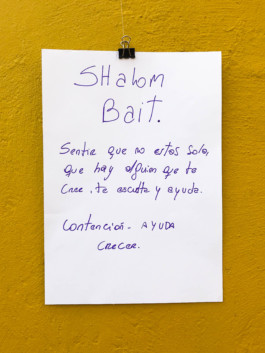 Shalom
Bait.
Sentir que no estas sola,
que hay alguien que te
cree, te escucha y ayuda.
Contención - AYUDA
crecer.